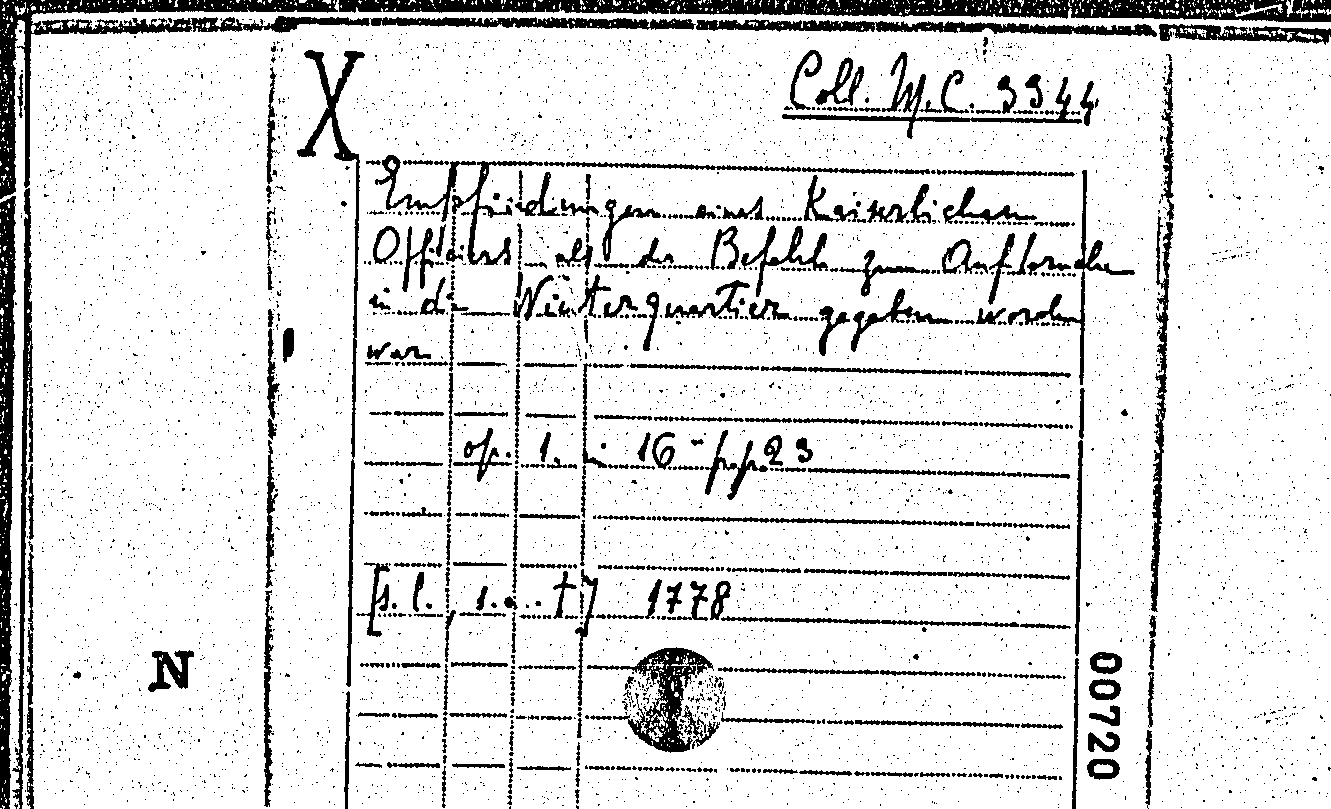 X
Coll. M.C. 3344
Empfindungen eines Kaiserlichen
Offiziers als der Befehl zum Aufbruche
in die Winterquartier gegeben worden
war
op. 1. in 16 - pp. 23
[s. l., s. .. t] 1778
N
00720